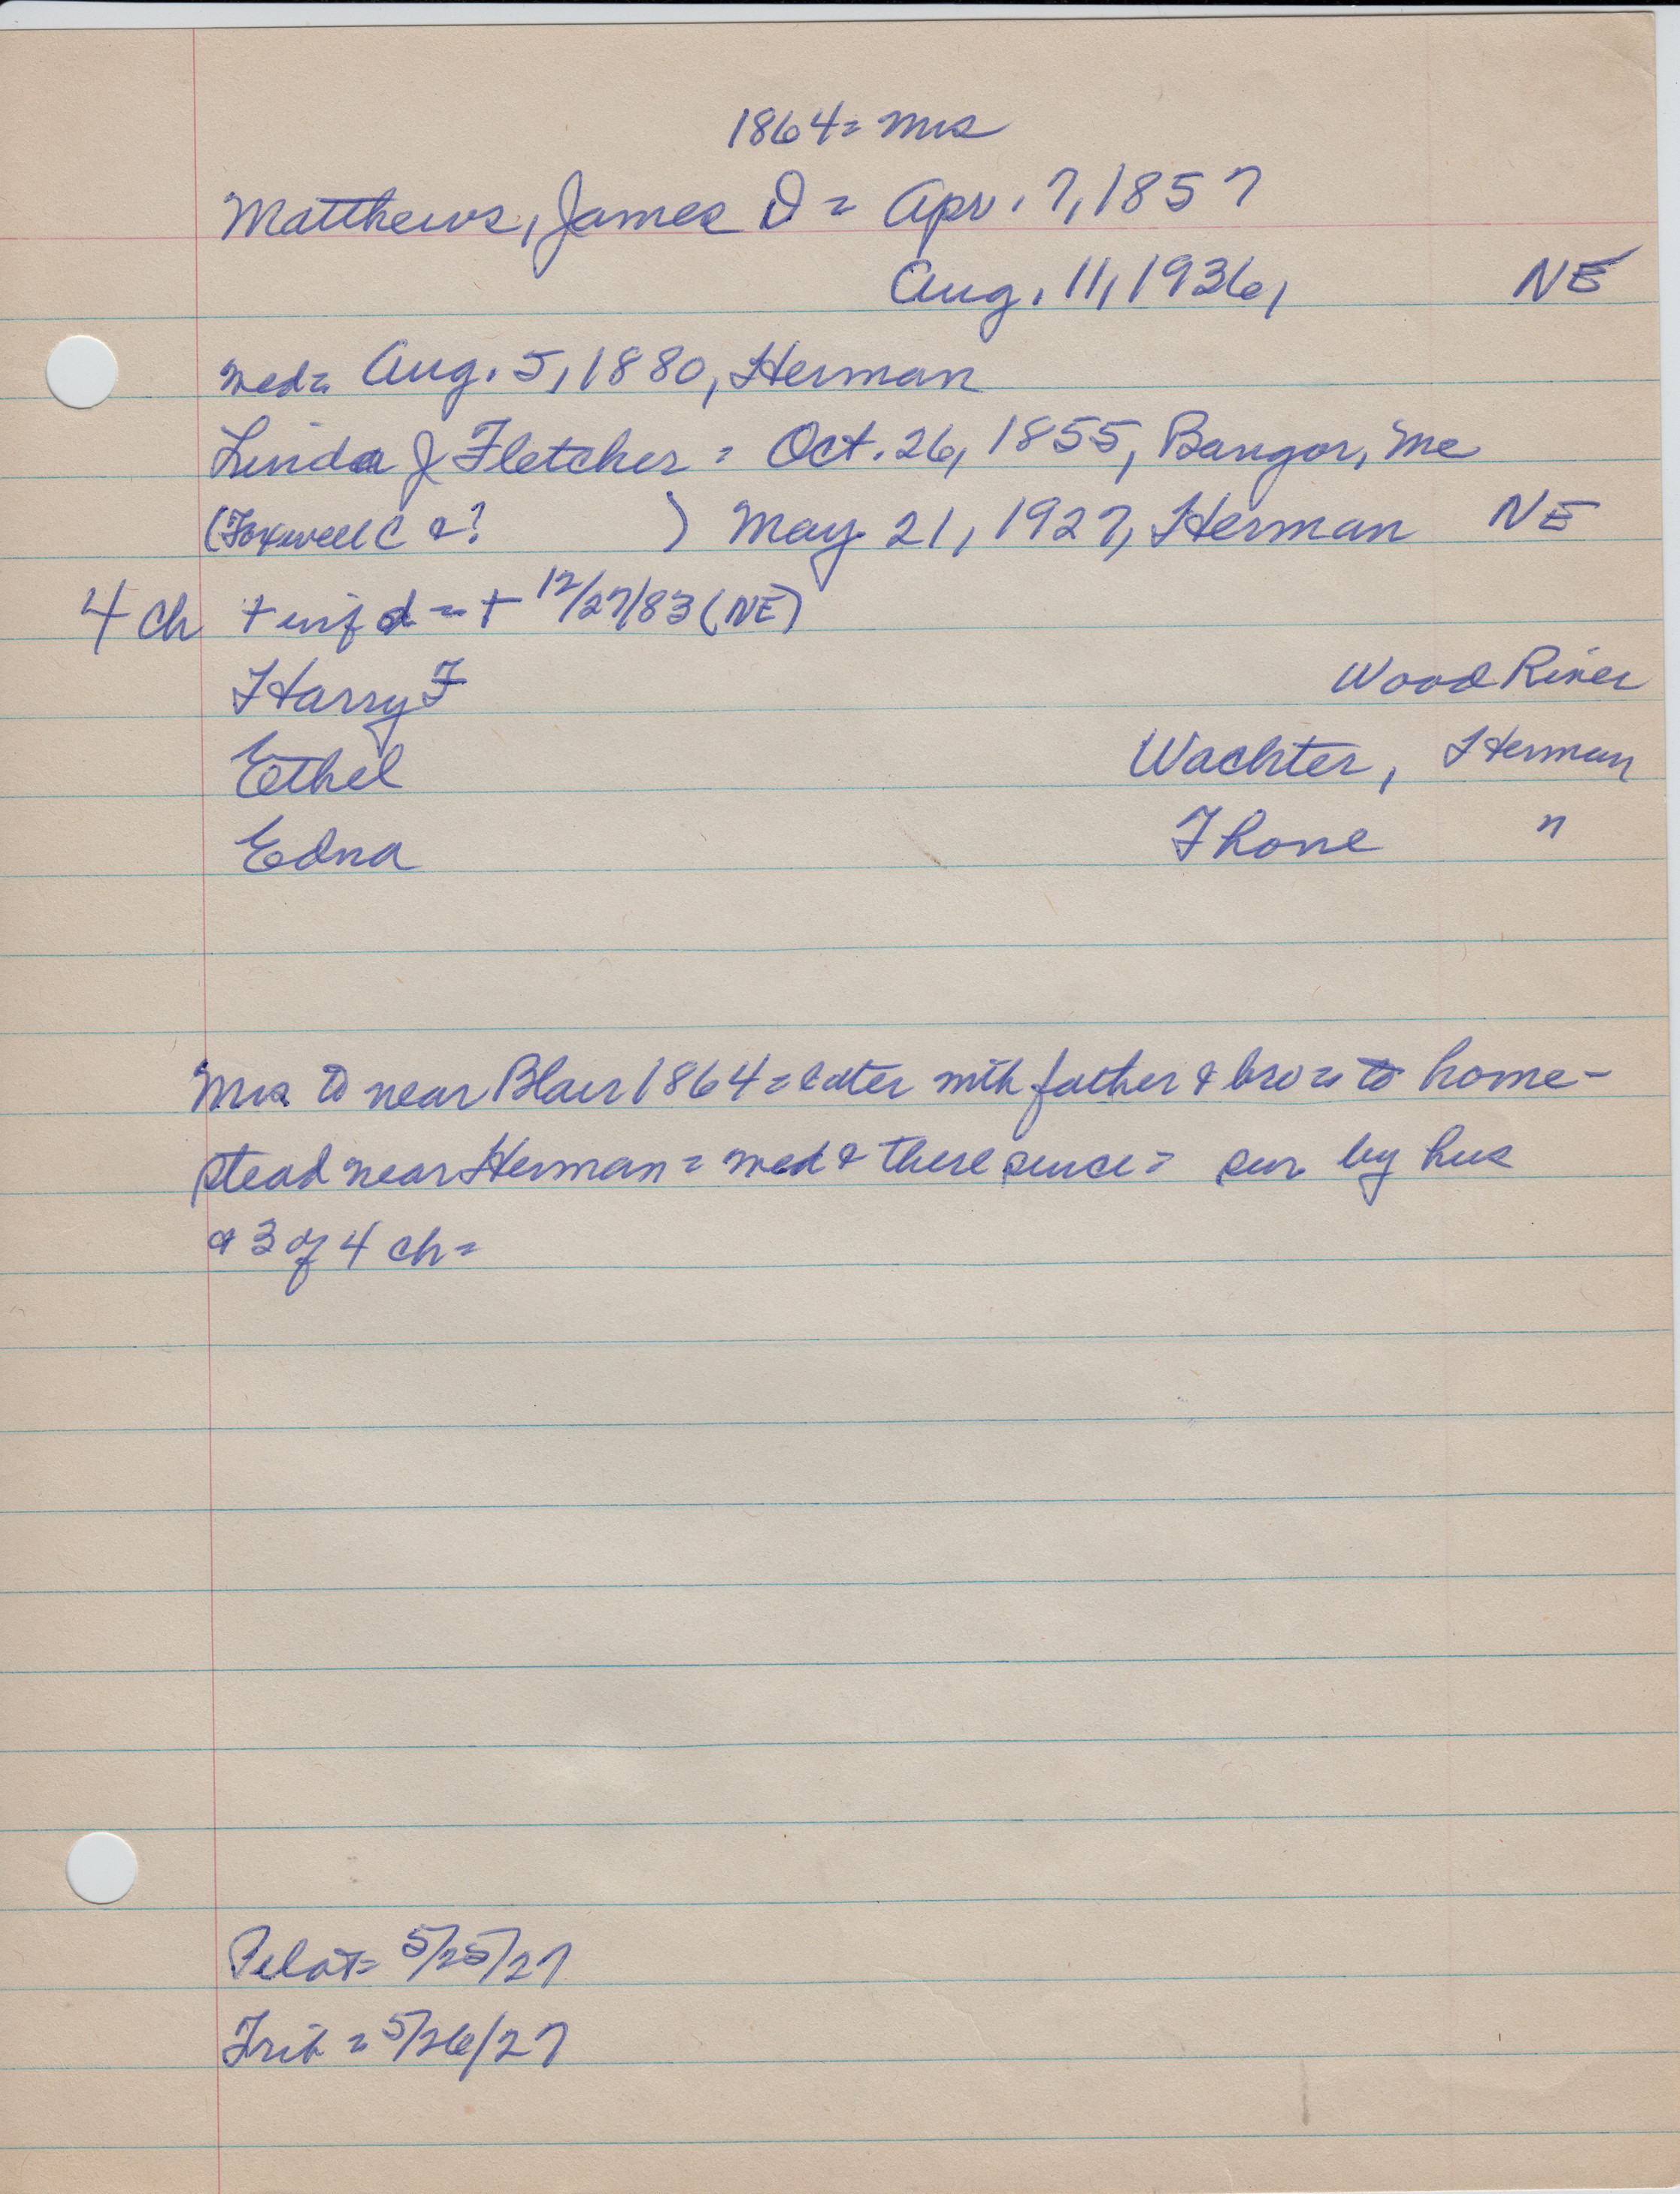 1864 = Mrs
Matthews, James D = Apr. 7, 1857
Aug. 11, 1936, NE
med = Aug. 5, 1880, Herman
Linda J Fletcher = Oct. 26, 1855, Bangor, Me
(Foxwell C & ? ) May 21, 1927, Herman NE
4 ch + inf d = + 12/27/83 (NE)
Harry F Wood River
Ethel Wachter, Herman
Edna Thone "
Mrs to near Blair 1864 = later with father & bro = to home-
stead near Herman = med & there since = sur by hus
& 3 of 4 ch =
Pilot = 5/25/27
Trib = 5/26/27